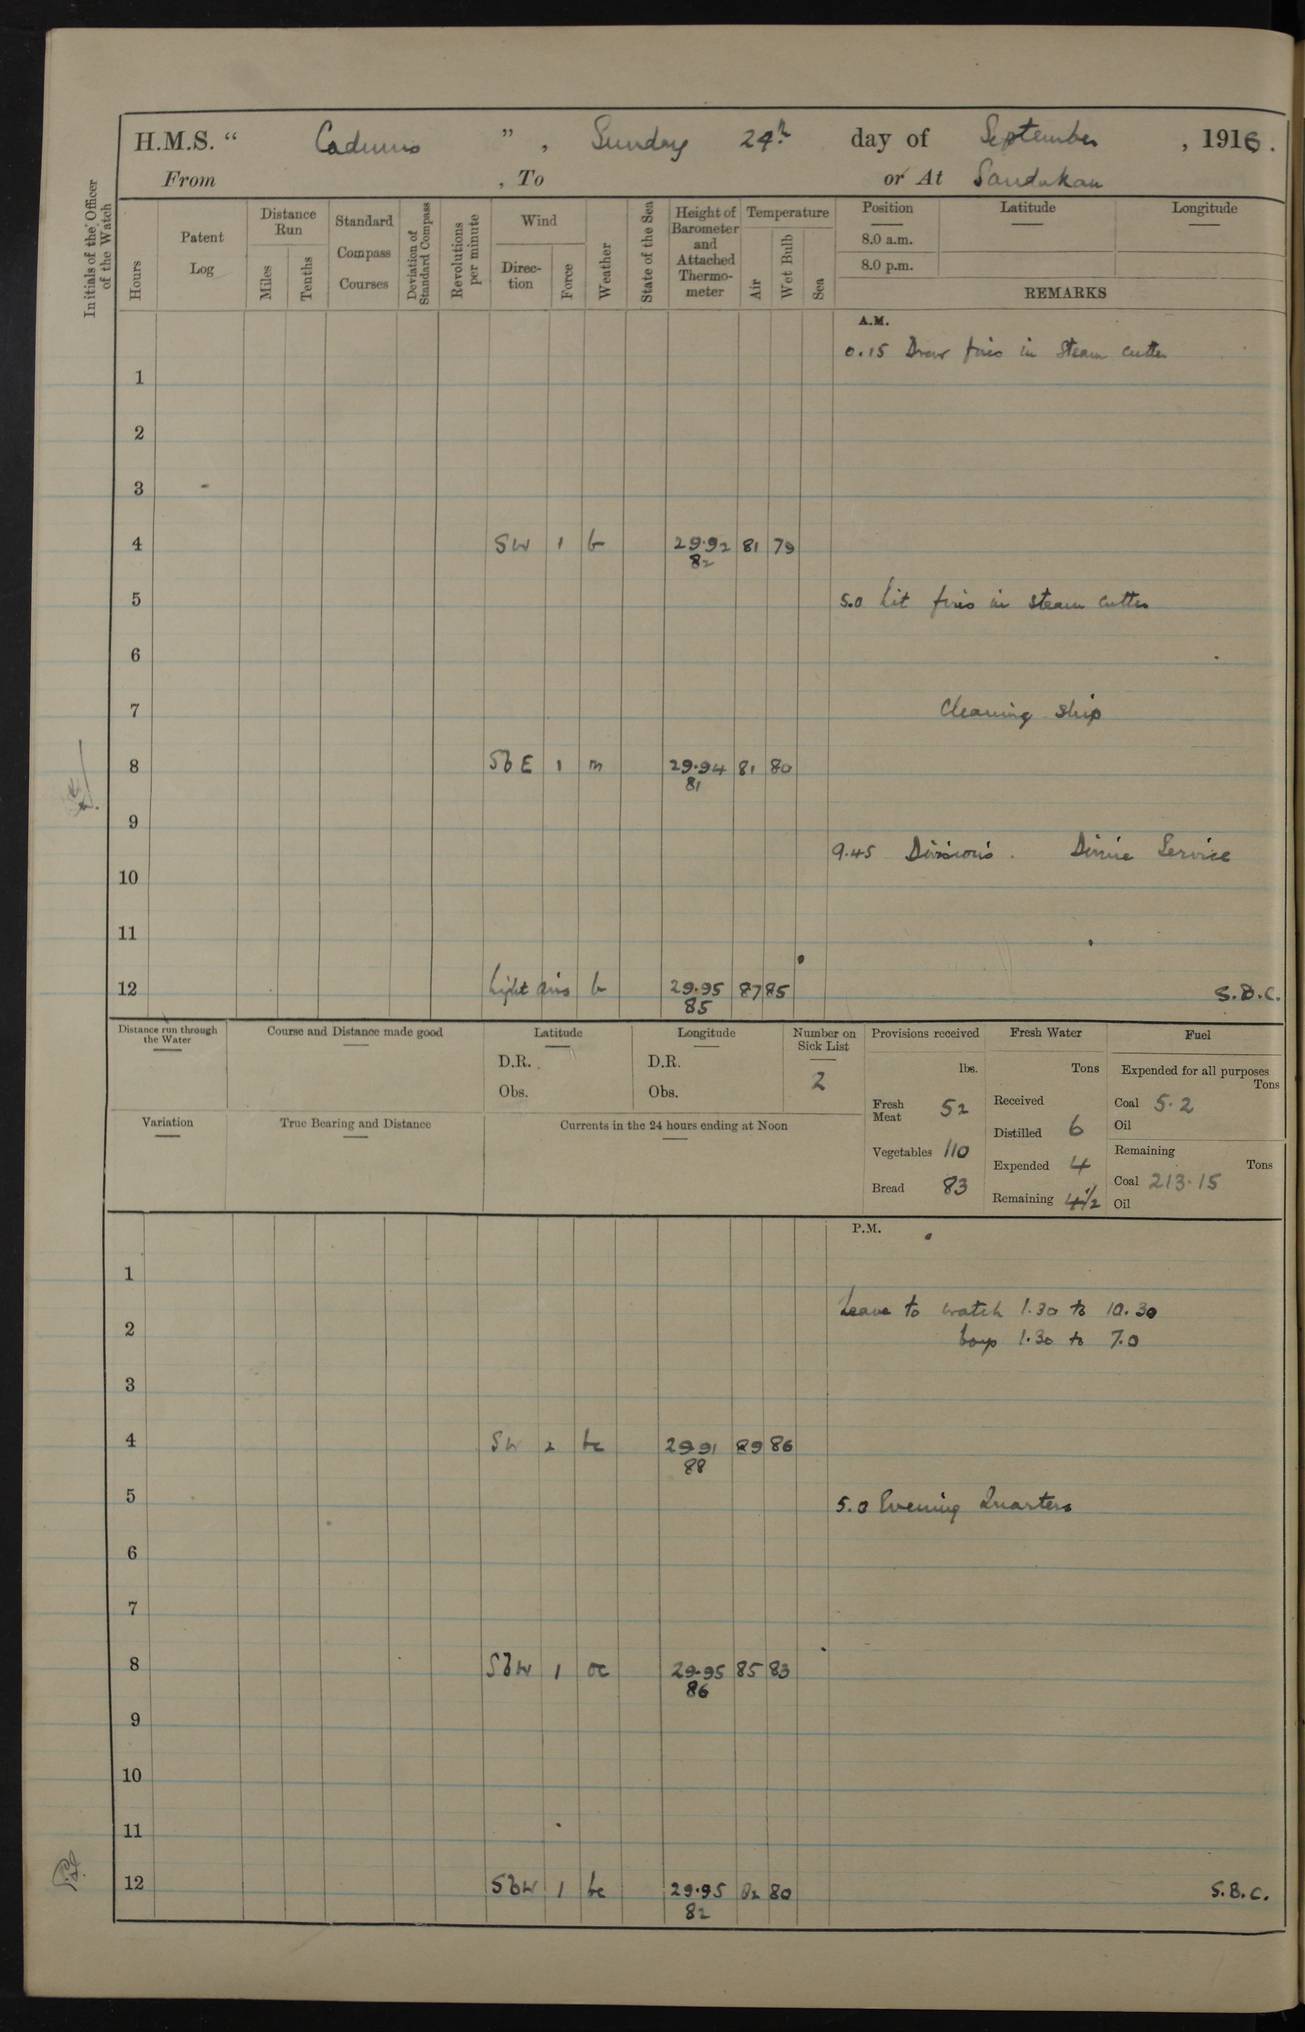 H.M.S. “ Cadmus ” , Sunday 24th day of September , 1916.
From , To or At Sandakan
Initials of the Officer of the Watch
Hours
Patent Log
Distance Run
Miles
Tenths
Standard Compass Courses
Deviation of Standard Compass
Revolutions per minute
Wind
Direc-tion
Force
Weather
State of the Sea
Height of Barometer and Attached Thermo-meter
Temperature
Air
Wet Bulb
Sea
Position Latitude Longitude
8.0 a.m.
8.0 p.m.
REMARKS
A.M.
0.15 Drew fires in Steam cutter
1
2
3
4 SW 1 b 29.92 81 79
82
5 5.0 Lit fires in steam cutter
6
7 Cleaning ship
8 SbE 1 m 29.94 81 80
81
9
9.45 Divisions. Divine Service
10
11
12 Light airs b 29.95 87 85 S.B.C.
85
Distance run through the Water
Course and Distance made good
Latitude
D.R.
Obs.
Longitude
D.R.
Obs.
Number on Sick List
2
Variation
True Bearing and Distance
Currents in the 24 hours ending at Noon
Provisions received
lbs.
Fresh Meat 52
Vegetables 110
Bread 83
Fresh Water
Tons
Received
Distilled 6
Expended 4
Remaining 41/2
Fuel
Expended for all purposes
Tons
Coal 5.2
Oil
Remaining
Tons
Coal 213.15
Oil
P.M.
1
Leave to watch 1.30 to 10.30
2 boys 1.30 to 7.0
3
4 SW 2 bc 29.91 89 86
88
5 5.0 Evening Quarters
6
7
8 SbW 1 oc 29.95 85 83
86
9
10
11
12 SbW 1 bc 29.95 82 80 S.B.C.
82